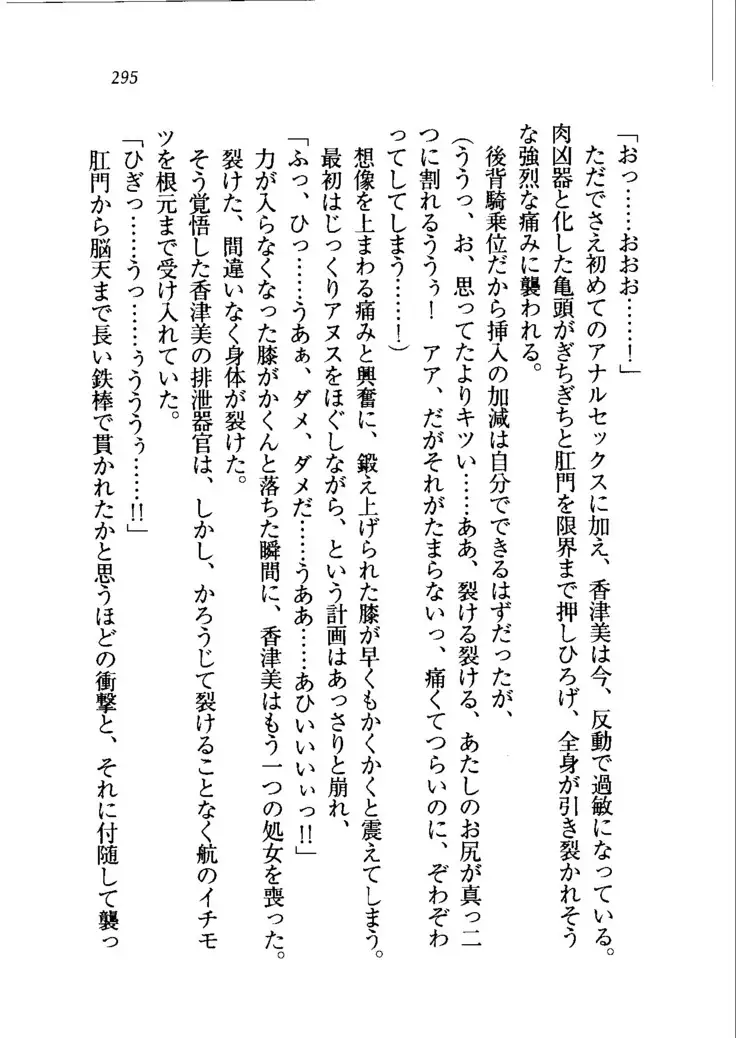 295
「おっ……おおお……！」
ただでさえ初めてのアナルセックスに加え、香津美は今、反動で過敏になっている。
肉凶器と化した亀頭がぎちぎちと肛門を限界まで押しひろげ、全身が引き裂かれそう
な強烈な痛みに襲われる。
後背騎乗位だから挿入の加減は自分でできるはずだったが、
（ううっ、お、思ってたよりキツい……ああ、裂ける裂ける、あたしのお尻が真っ二
つに割れるううぅ！　アア、だがそれがたまらないっ、痛くてつらいのに、ぞわぞわ
ってしてしまう……！）
想像を上まわる痛みと興奮に、鍛え上げられた膝が早くもかくかくと震えてしまう。
最初はじっくりアヌスをほぐしながら、という計画はあっさりと崩れ、
「ふっ、ひっ……うあぁ、ダメ、ダメだ……うああ……あひいいいぃっ!!」
力が入らなくなった膝がかくんと落ちた瞬間に、香津美はもう一つの処女を喪った。
裂けた、間違いなく身体が裂けた。
そう覚悟した香津美の排泄器官は、しかし、かろうじて裂けることなく航のイチモ
ツを根元まで受け入れていた。
「ひぎっ……うっ……ぅうううぅ……!!」
肛門から脳天まで長い鉄棒で貫かれたかと思うほどの衝撃と、それに付随して襲っ